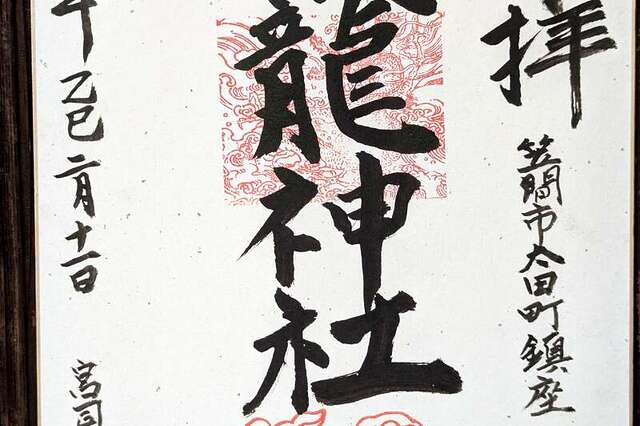 拝
笠間市太田町鎮座
龍神社
年乙巳二月十一日
宮司